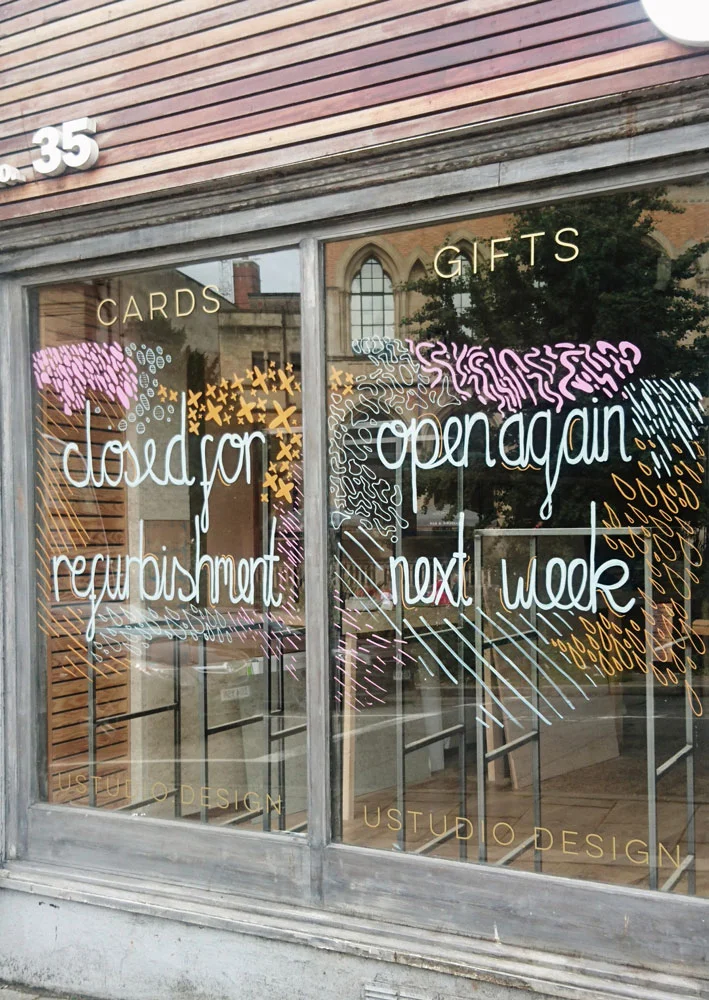 No. 35
CARDS
GIFTS
closed for
refurbishment
open again
next week
USTUDIO DESIGN
USTUDIO DESIGN